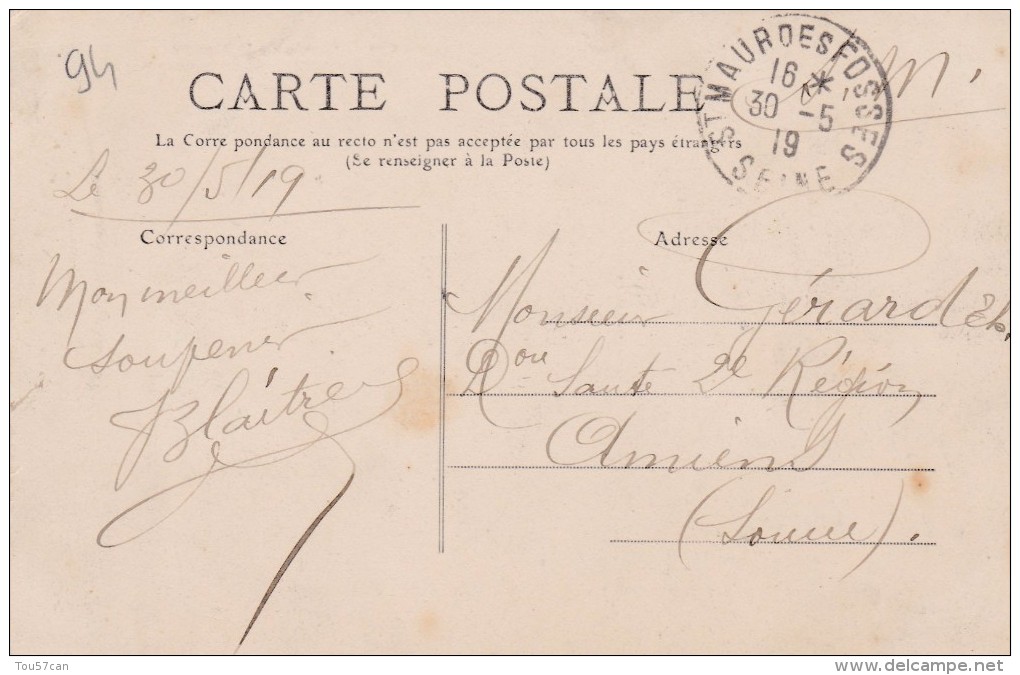 94
CARTE POSTALE
La Corre pondance au recto n'est pas acceptée par tous les pays étrangers
(Se renseigner à la Poste)
ST MAUR DES FOSSES
16 *
30 -5
19
SEINE
Le 30/5/19
Correspondance
Mon meilleur
souvenir
Adresse
Monsieur Gérard
Don Santé 2e Région
Amiens
(Somme).
Tou57can
www.delcampe.net